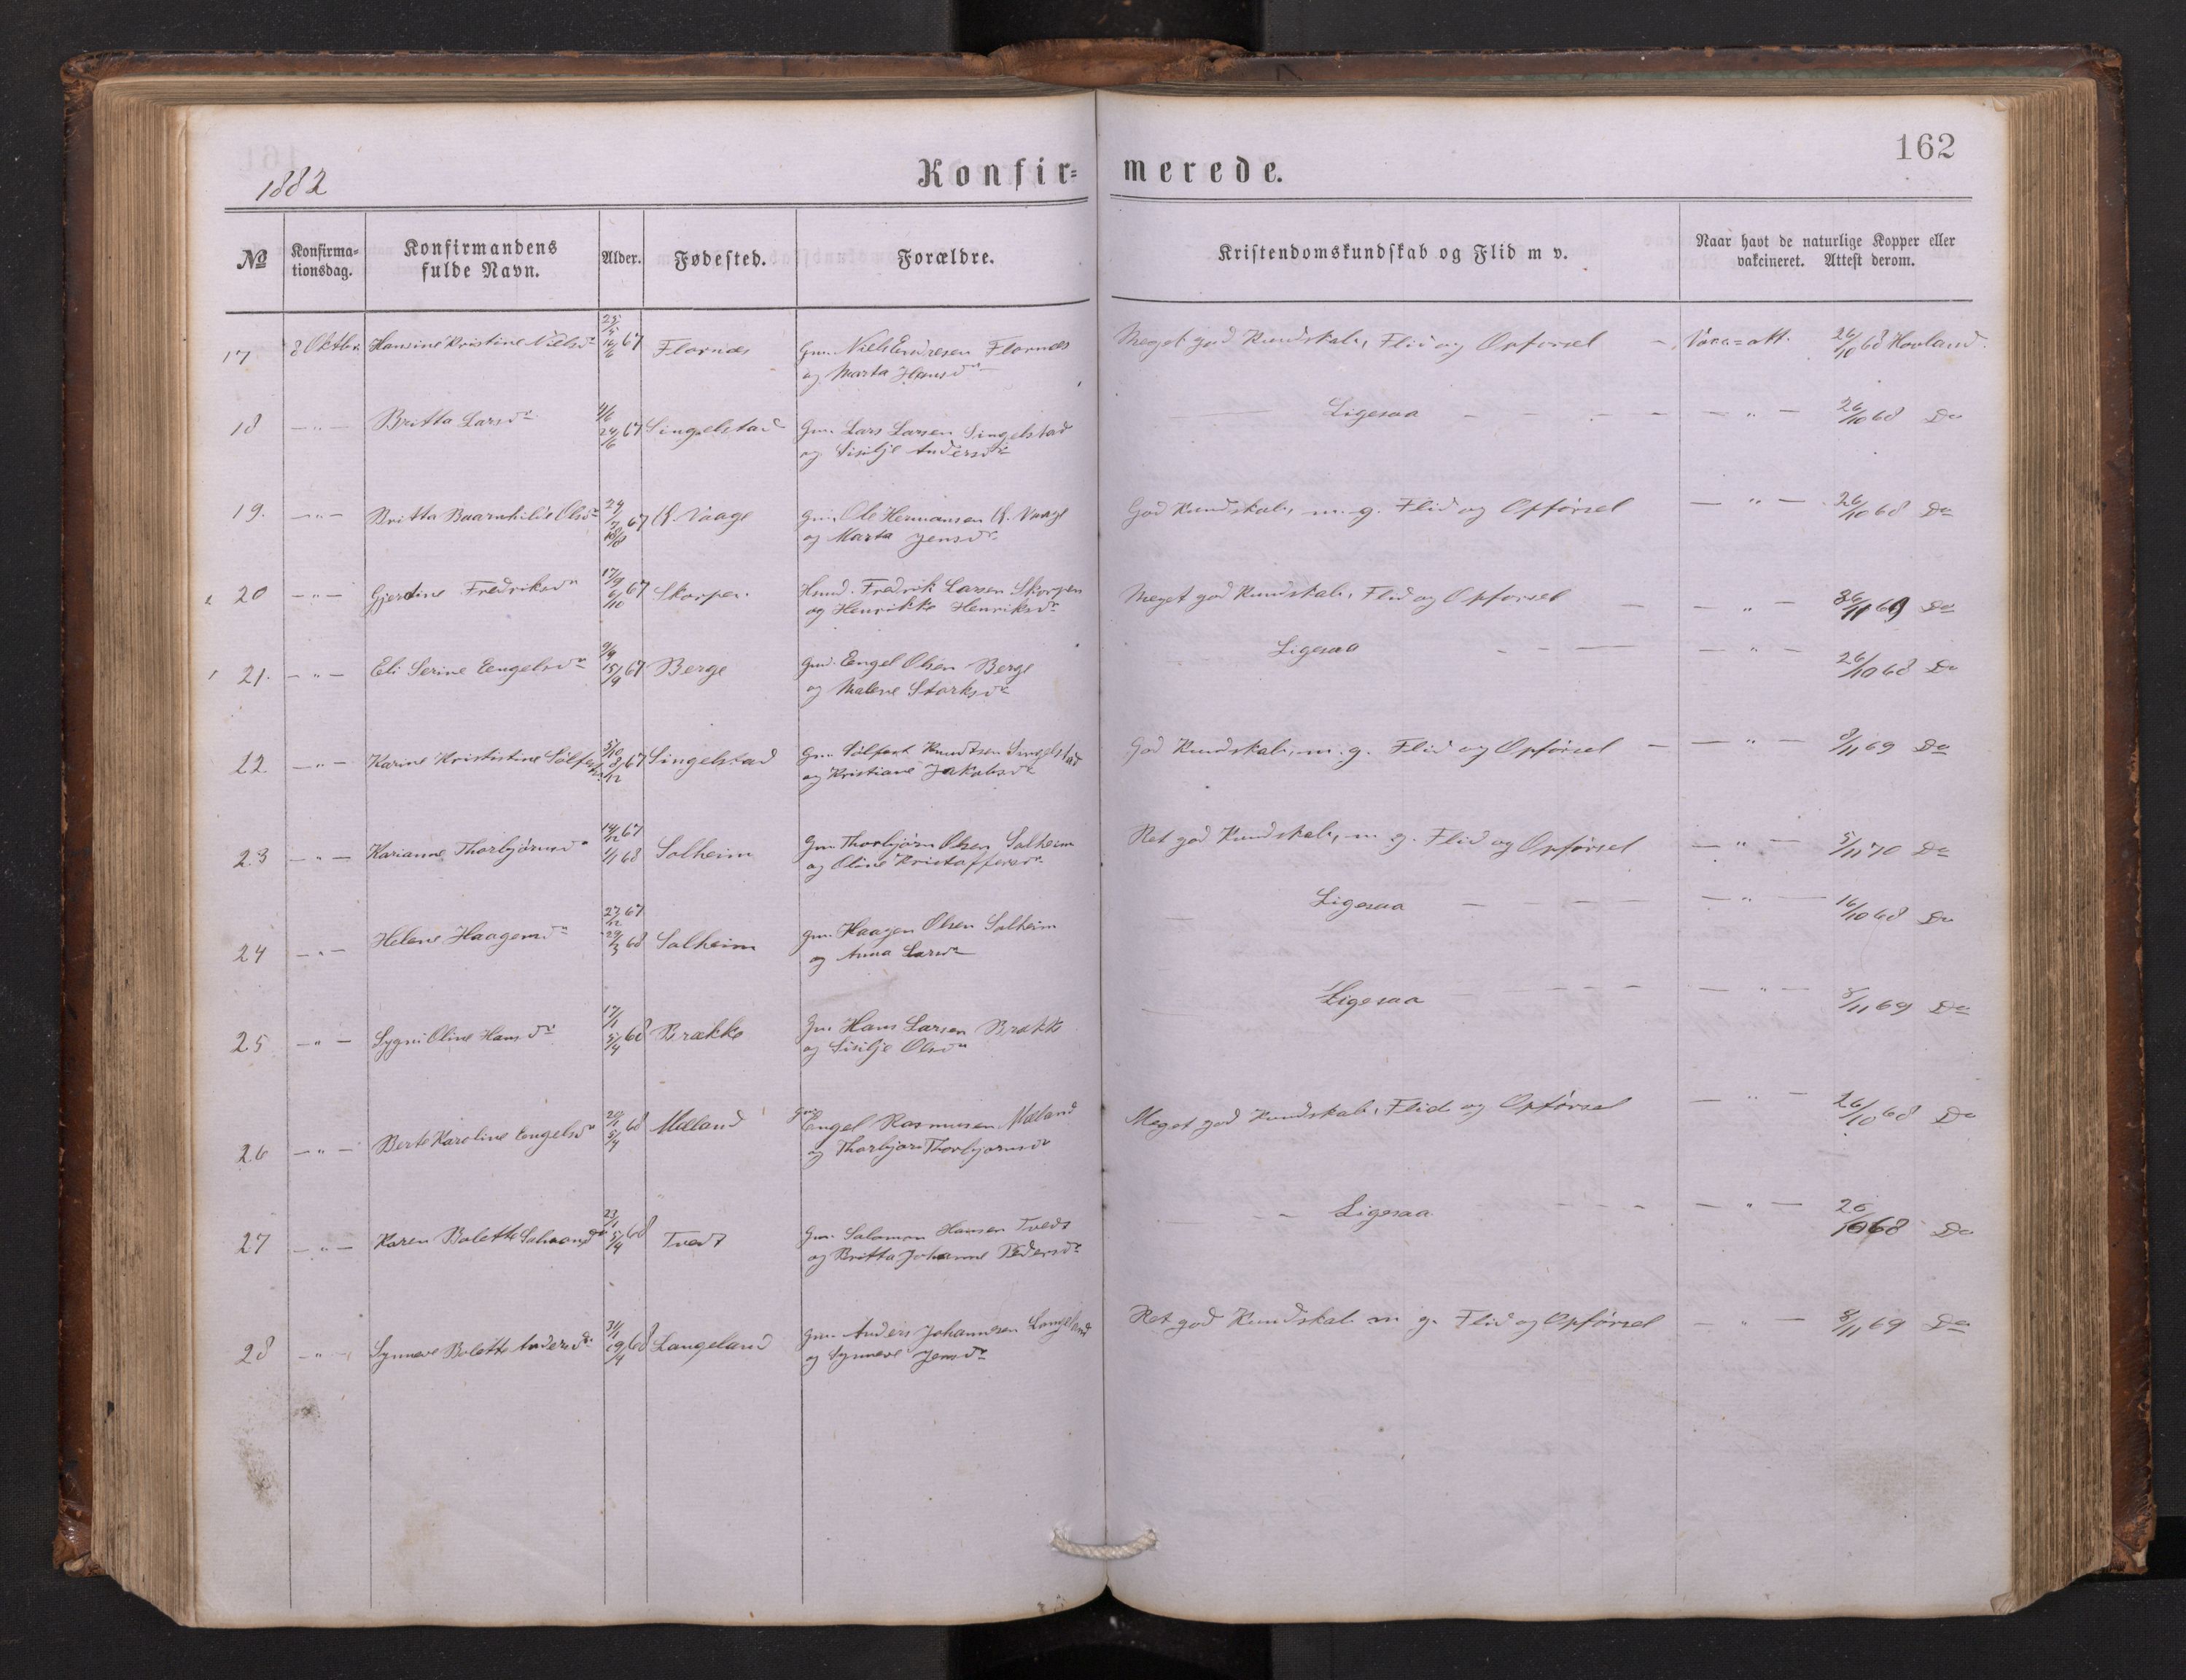 162
1882
Konfir= merede.
№ Konfirma-tionsdag. Konfirmandens fulde Navn. Alder. Fødested. Forældre. Kristendomskundskab og Flid m v. Naar havt de naturlige Kopper eller vakcineret. Attest derom.
17 8 Oktbr. Hansine Kristine Nielsdr 67 Flornes Gm. Niels Endresen Flornes Meget god Kundskab, Flid og Opførsel – Vacc=att. 26/10 68 Hovland.
og Marta Hansdr
18 – " – Britta Larsdr 4/6 24/6 67 Singelstad Gm. Lars Larsen Singelstad Ligesaa – " – 26/10 68 Do
og Sisilje Andersdr
19. – " – Britta Baarnhilde Olsdr 24/7 18/8 67 N. Vaage Gm. Ole Hermansen N. Vaage God Kundskab, m. g. Flid og Opførsel – " – 26/10 68 Do
og Marta Jensdr
20 – " – Gjerdine Fredriksdr 17/9 6/10 67 Skorpen Hmd. Fredrik Larsen Skorpen Meget god Kundskab, Flid og Opførsel – " – 69 Do
og Henrikke Henriksdr
21. – " – Eli Serine Engelsdr 9/9 15/9 67 Berge Gmd. Engel Olsen Berge Ligesaa – " – 26/10 68 Do
og Malene Størksdr
22 – " – Karine Krististine 5/10 8/12 67 Singelstad Gm. Sølfest Knudtsen Singelstad God Kundskab, m. g. Flid og Opførsel – " – 8/11 69 Do
og Kristiane Jakobsdr
23 – " – Karianne Thorbjørnsdr 14/12 67 1/1 68 Solheim Gm. Thorbjørn Olsen Solheim Ret god Kundskab, m. g. Flid og Opførsel – " – 5/11 70 Do
og Oline Kristoffersdr
24 – " – Helene Haagensdr 27/12 67 29/3 68 Solheim Gm. Haagen Olsen Solheim Ligesaa – " – 16/10 68 Do
og Anna Larsdr
25 – " – Sygni Oline Hansdr 17/1 5/4 68 Brække Gm. Hans Larsen Brække Ligesaa – " – 8/11 69 Do
og Sisilje Olsdr
26 – " – Berte Karoline Engelsdr 5/4 68 Mæland Gm. Engel Rasmusen Mæland Meget god Kundskab, Flid og Opførsel – " – 26/10 68 Do
og Thorbjør Thorbjørnsdr
27 – " – Karen Bolette 23/1 5/4 68 Tvedt Gm. Salomon Hansen Tvedt Ligesaa – " – 26/10 68 Do
og Britta Johanne Pedersdr
28 – " – Synneve Bolette Andersdr 31/1 19/4 68 Langeland Gm. Anders Johannesen Langeland Ret god Kundskab m g. Flid og Opførsel – " – 8/11 69 Do
og Synneve Jensdr